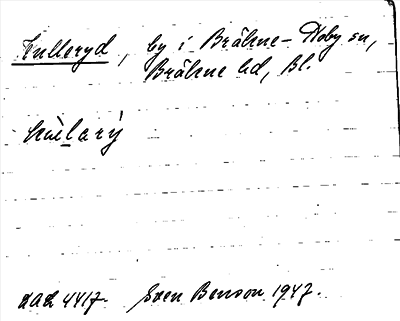 Kulleryd, by i Bräkne-Hoby sn,
Bräkne hd, Bl.
dad 4417. Sven Benson 1947.